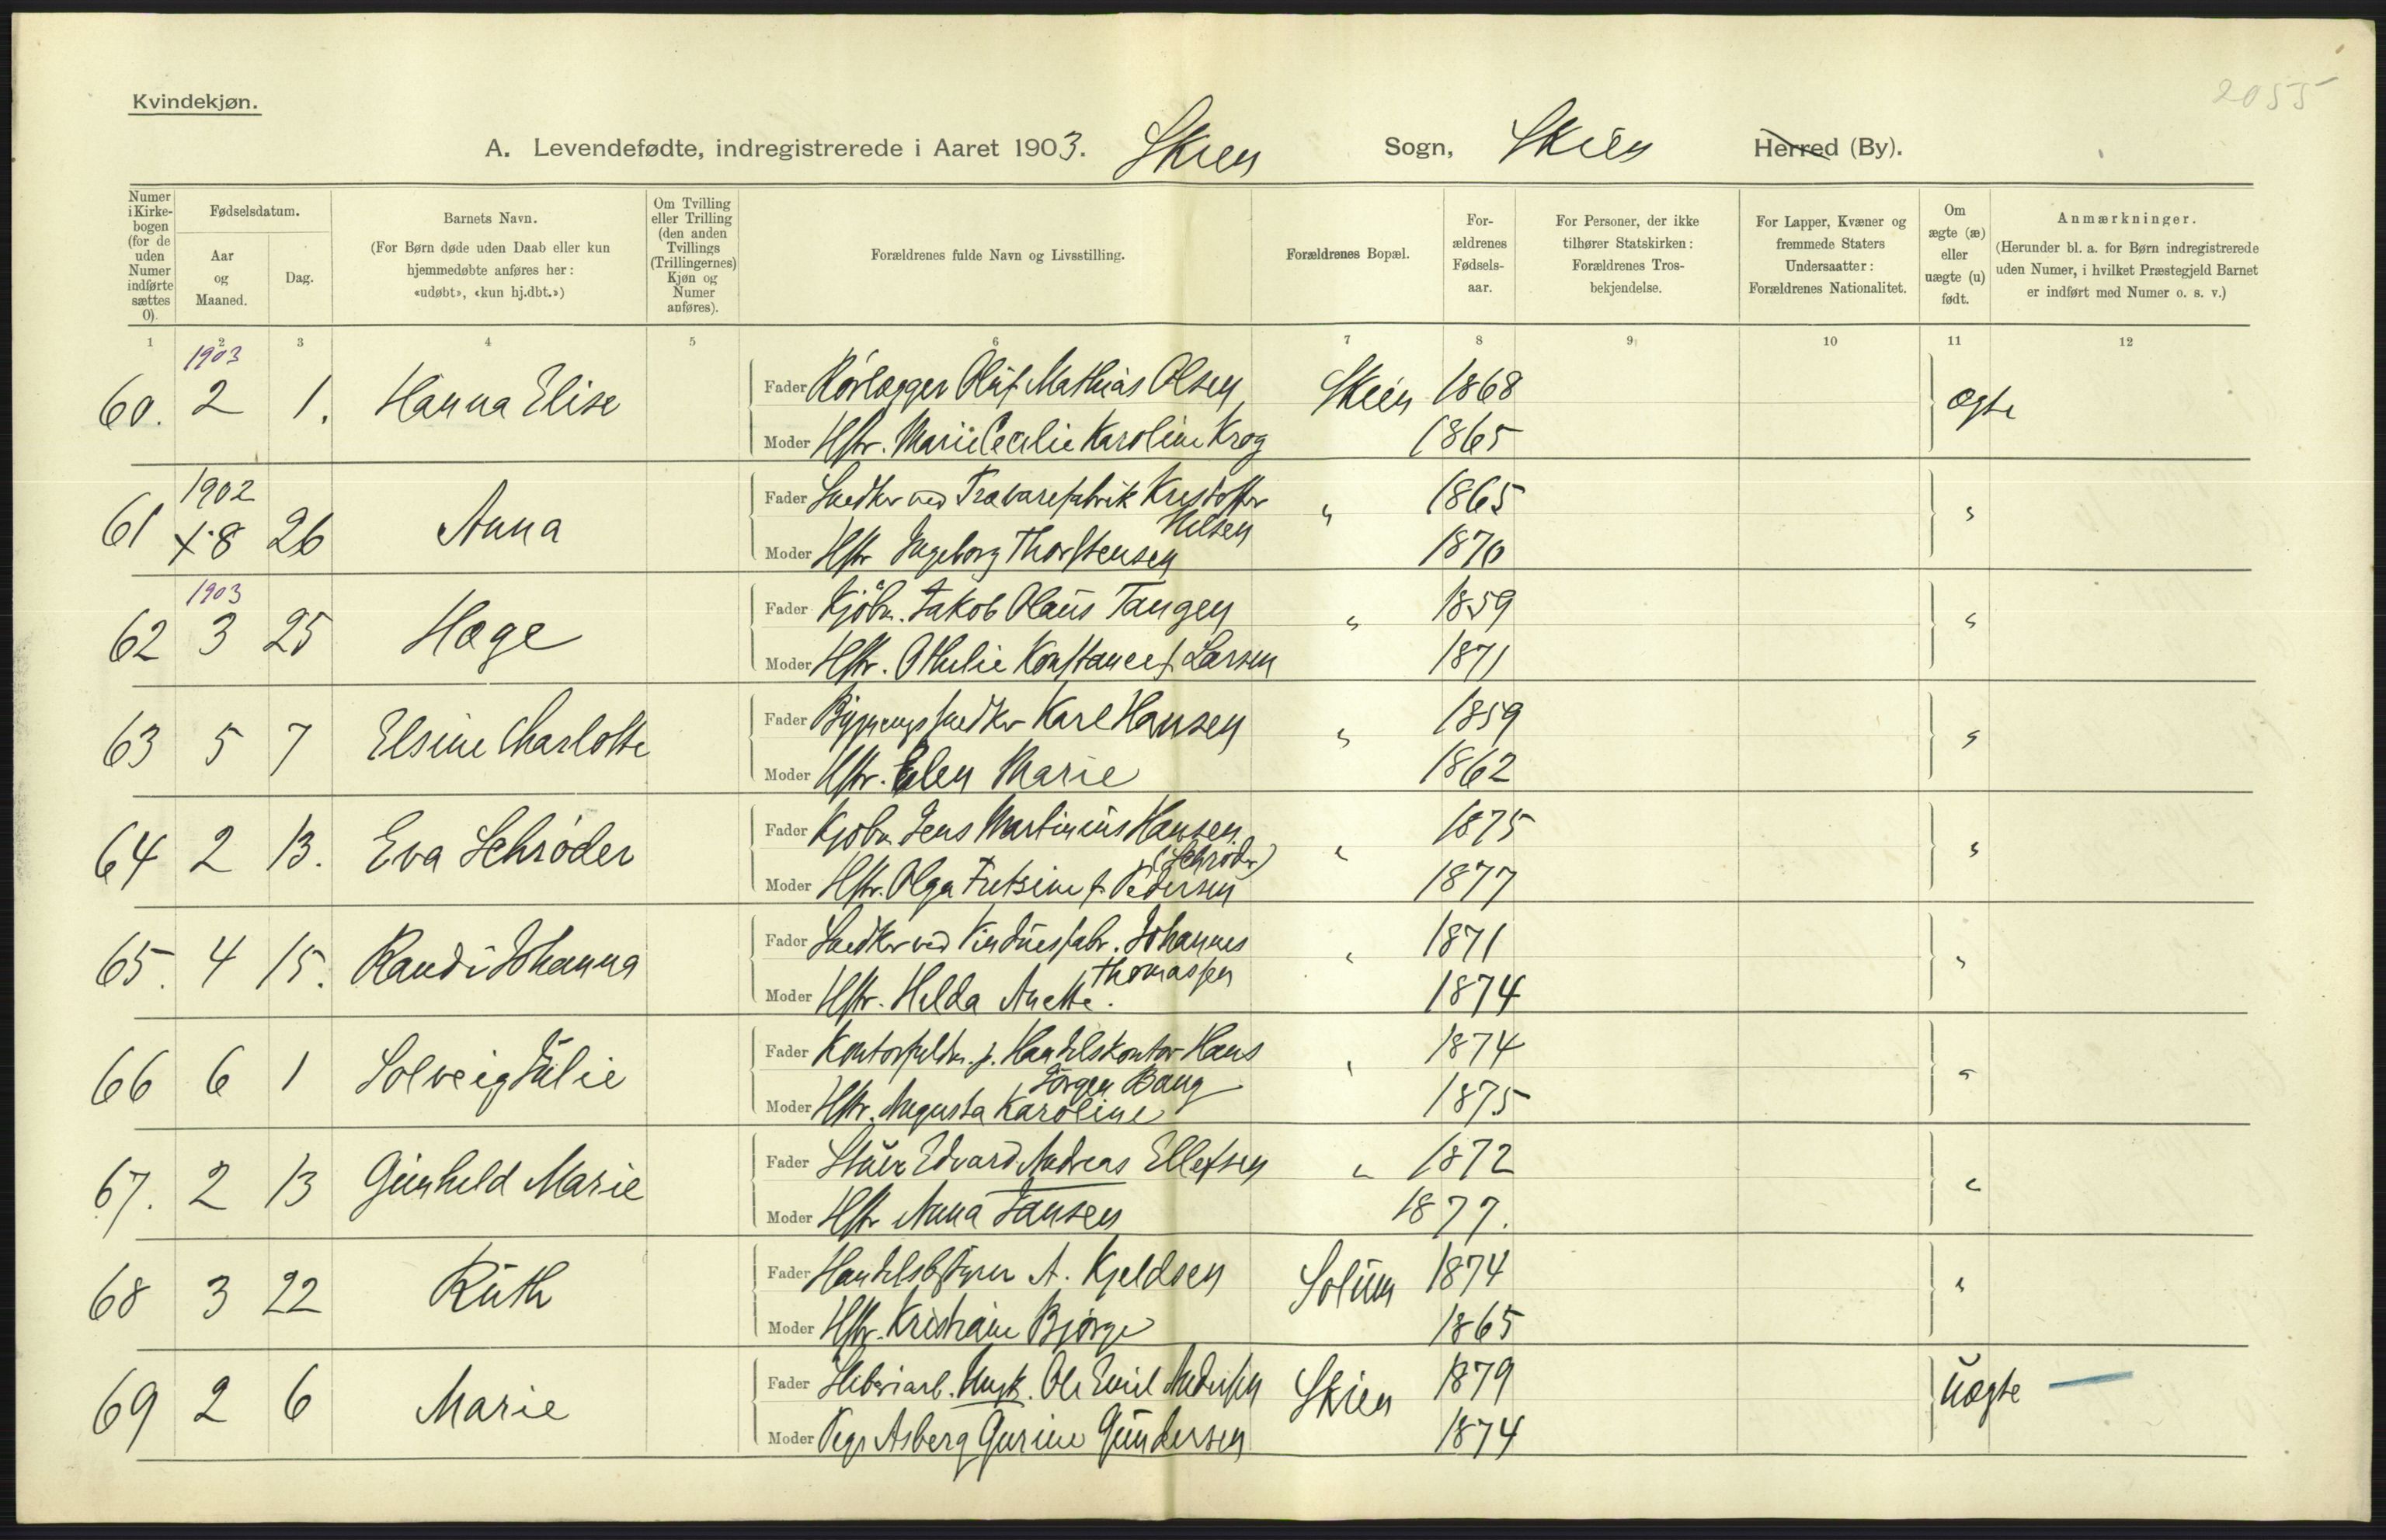 2055
Kvindekjøn.
A. Levendefødte, indregistrerede i Aaret 1903. Skien Sogn, Skien Herred (By).
Numer i Kirkebogen (for de uden Numer indførte sættes 0).
Fødselsdatum.
Aar og Maaned.
Dag.
Barnets Navn.
(For Børn døde uden Daab eller kun hjemmedøbte anføres her: «udøbt», «kun hj.dbt.»)
Om Tvilling eller Trilling (den anden Tvillings (Trillingernes) Kjøn og Numer anføres).
Forældrenes fulde Navn og Livsstilling.
Forældrenes Bopæl.
Forældrenes Fødselsaar.
For Personer, der ikke tilhører Statskirken: Forældrenes Trosbekjendelse.
For Lapper, Kvæner og fremmede Staters Undersaatter: Forældrenes Nationalitet.
Om ægte (æ) eller uægte (u) født.
Anmærkninger.
(Herunder bl. a. for Børn indregistrerede uden Numer, i hvilket Præstegjeld Barnet er indført med Numer o. s. v.)
1 2 3 4 5 6 7 8 9 10 11 12
1903
60. 2 1. Hanna Elise Fader Rørlægger Oluf Mathias Olsen Skien 1868 ægte
Moder Hstr. Marie Cecilie Karoline Krog 1865
1902
61 +8 26 Anna Fader Snedker ved Trævarefabrik Kristoffer Nilsen " 1865 "
Moder Hstr Ingeborg Thorstensen 1870
1903
62 3 25 Hæge Fader Kjøbm. Jakob Olaus Tangen " 1859 "
Moder Hstr. Othilie Konstance f. Larsen 1871
63 5 7 Elsine Charlotte Fader Bygningssnedker Karl Hansen " 1859 "
Moder Hstr. Elen Marie 1862
64 2 13. Eva Schrøder Fader Kjøbm Jens Martinius Hansen (Schrøder) " 1875 "
Moder Hstr. Olga f. Pedersen 1877
65. 4 15. Randi Johanna Fader Snedker ved Vinduesfabr. Johannes Thomassen " 1871 "
Moder Hstr. Hilda Anette. 1874
66 6 1 Solveig Julie Fader Kontorfuldm. p. Handelskontor Hans Jørgen Bang " 1874 "
Moder Hstr. Augusta Karoline 1875
67. 2 13 Gunhild Marie Fader Edvard Andreas Ellefsen " 1872 "
Moder Hstr Anna Jansen 1877.
68 3 22 Ruth Fader Handelsbestyrer A. Kjeldsen Solum 1874 "
Moder Hstr. Kristiane Bjørge 1865
69 2 6 Marie Fader Sliberiarb. Ungk. Ole Emil Andersen Skien 1879 uægte
Moder Pige Asberg Gurine Gundersen 1874